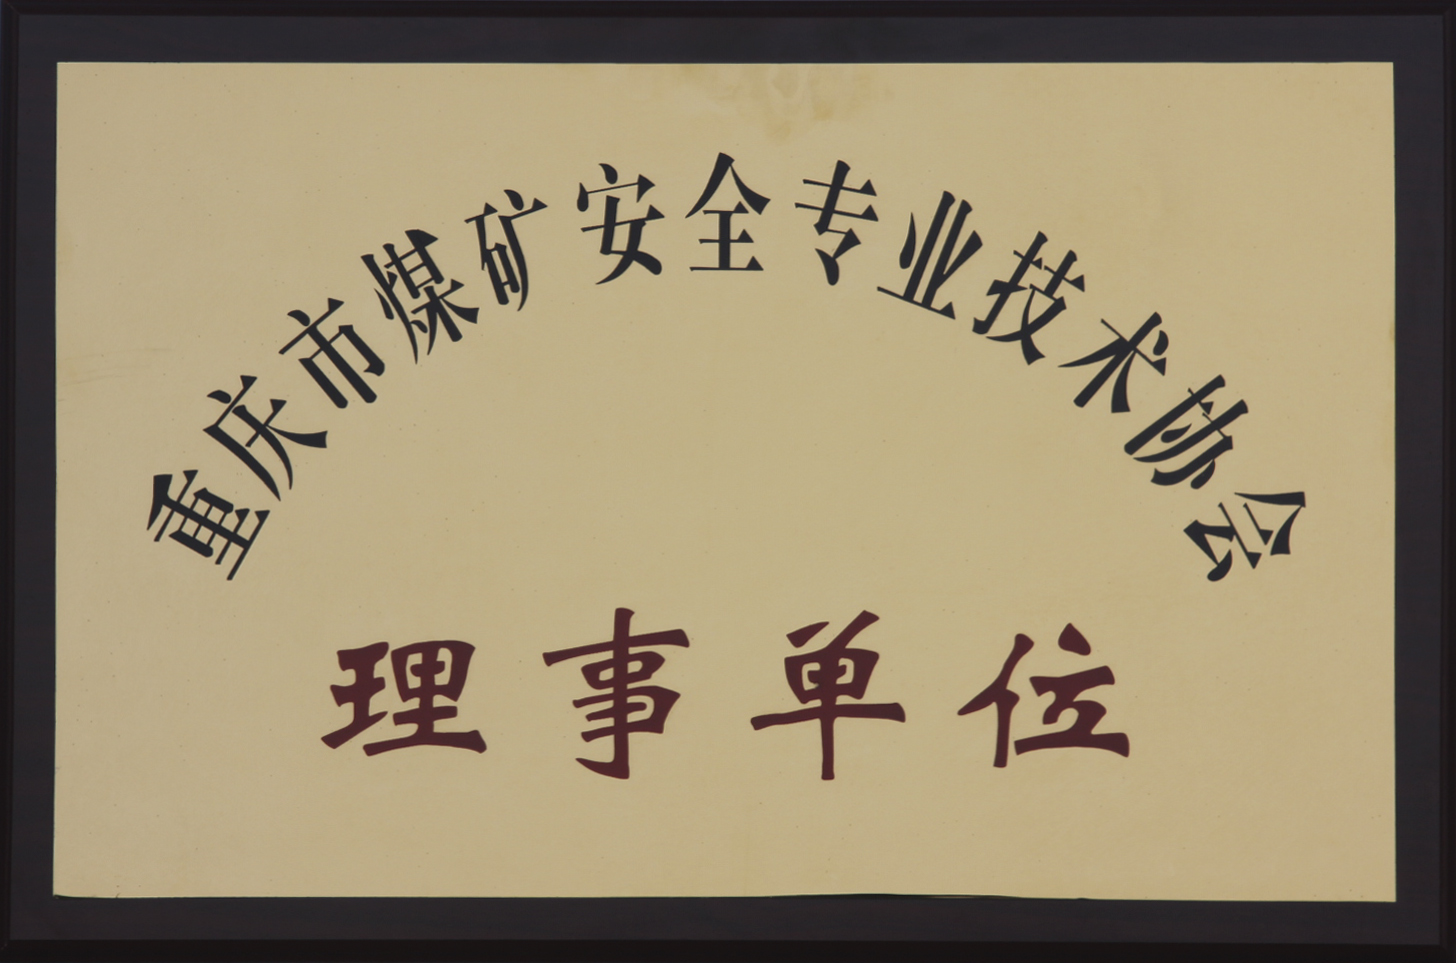 重庆市煤矿安全专业技术协会
理事单位